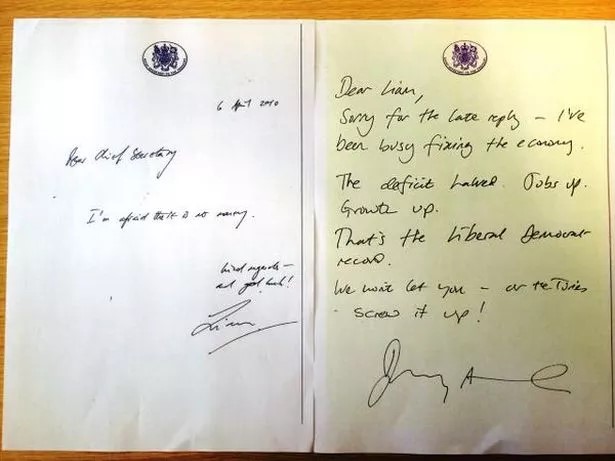 6 April 2010
Dear Chief Secretary
I'm afraid there is no money.
kind regards –
and good luck!
Liam
Dear Liam,
Sorry for the late reply – I've
been busy fixing the economy.
The deficit halved. Jobs up.
Growth up.
That's the Liberal Democrat
record.
We won't let you – or the Tories
- screw it up!